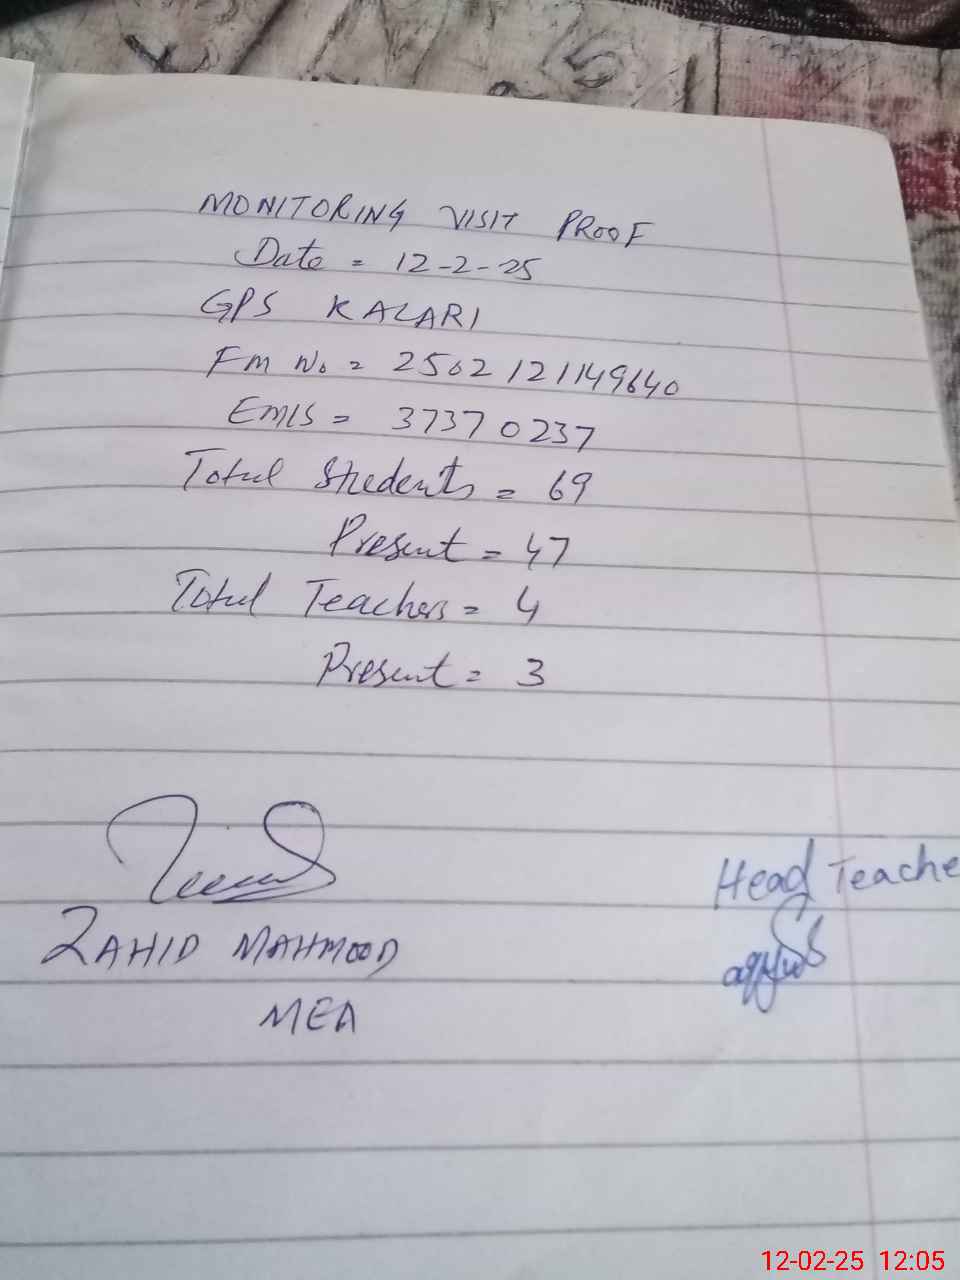 MONITORING VISIT PROOF
Date = 12-2-25
GPS KALARI
Fm No = 2502121149640
EMIS = 37370237
Total Students = 69
Present = 47
Total Teachers = 4
Present = 3
ZAHID MAHMOOD
MEA
Head Teache
12-02-25 12:05